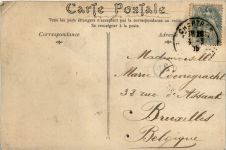 Carte Postale
Tous les pays étrangers n'acceptent pas la correspondance au recto.
Se renseigner à la poste
Correspondance
Mademoiselle
Marie
32 rue d'Assaut
Bruxelles
Belgique